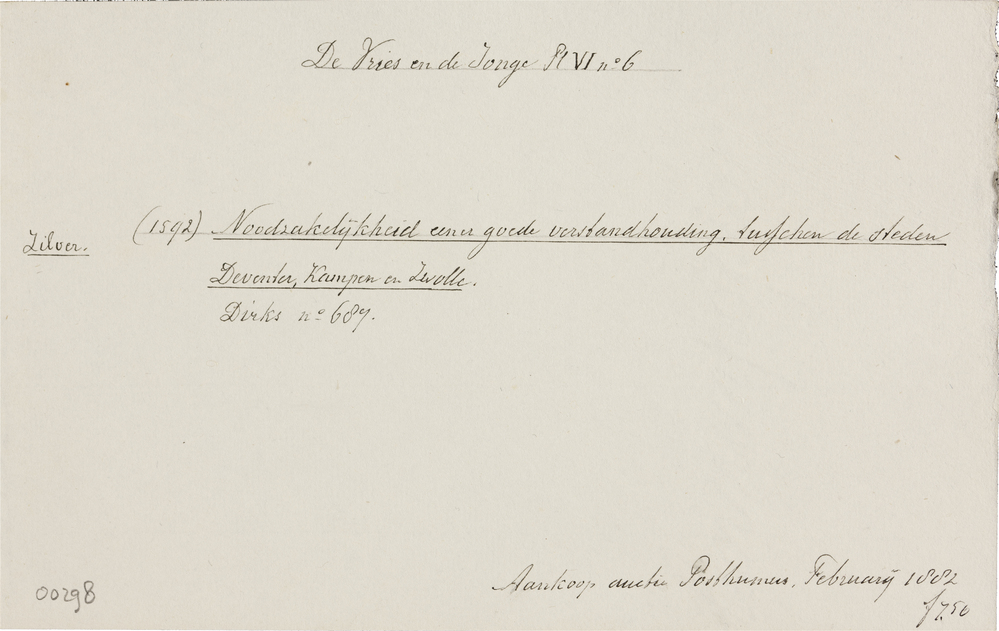 De Vries en de Jonge Pl VI nº 6
Zilver.
(1592) Noodzakelijkheid eener goede verstandhouding. tusschen de steden
Deventer, Kampen en Zwolle.
Dirks nº 689.
Aankoop auctie Posthumus. Februarij 1882
ƒ 7.50
00298